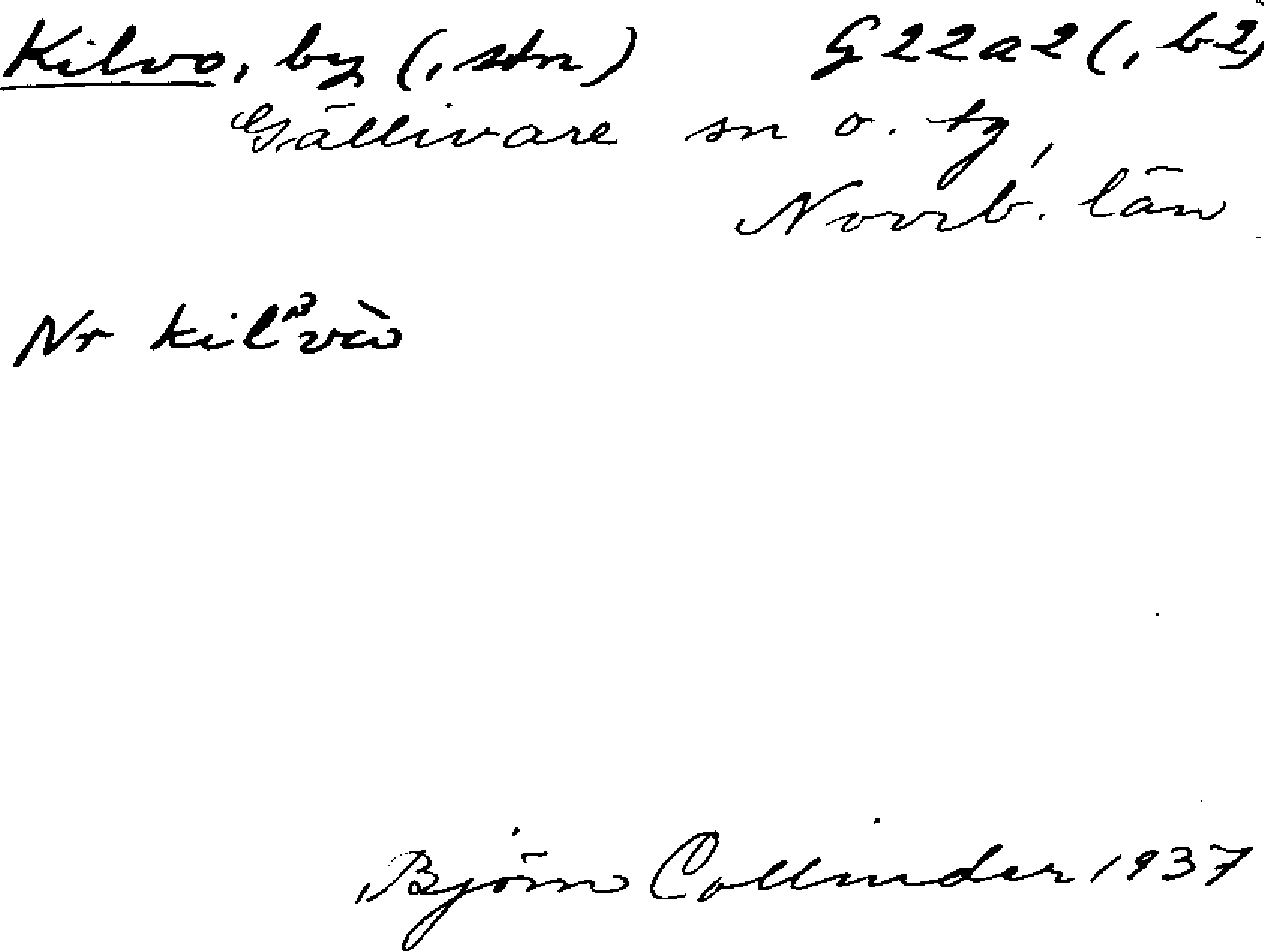 Kilvo, by (, stn) G22a2(, b2)
Gällivare sn o. tg,
Norrb. län
Nr
Björn Collinder 1937